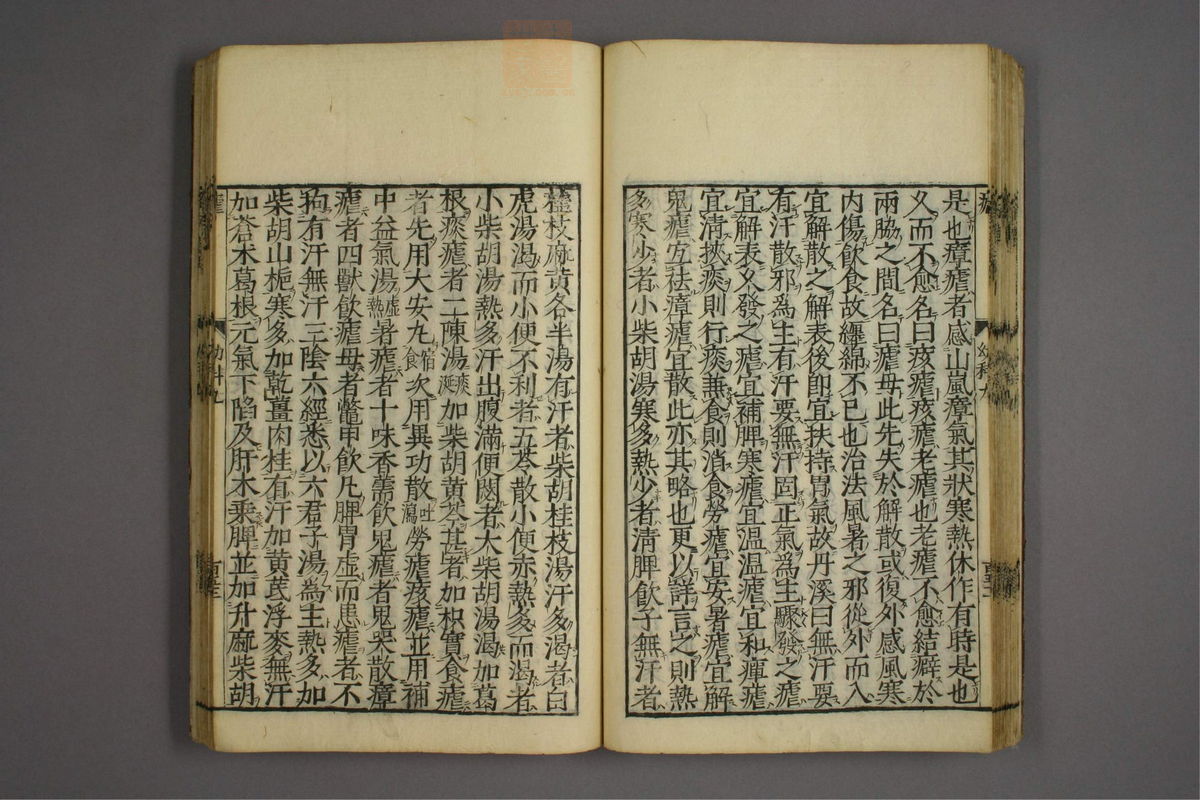 是也瘴瘧者感山嵐瘴氣其狀寒熱休作有時是也
久而不愈名曰痎瘧痎瘧老瘧也老瘧不愈結癖於
兩脇之間名曰瘧母此先失於解散或復外感風寒
內傷飲食故纏綿不已也治法風暑之邪從外而入
宜解散之解表後即宜扶持胃氣故丹溪曰無汗要
有汗散邪爲主有汗要無汗固正氣爲主驟發之瘧
宜解表久發之瘧宜補脾寒瘧宜溫溫瘧宜和瘅瘧
宜清挾痰則行痰兼食則消食勞瘧宜安暑瘧宜解
鬼瘧宜祛瘴瘧宜散此亦其略也更以詳言之則熱
多寒少者小柴胡湯寒多熱少者清脾飲子無汗者
桂枝麻黃各半湯有汗者柴胡桂枝湯汗多渴者白
虎湯渴而小便不利者五苓散小便赤熱多而渴者
小柴胡湯熱多汗出腹滿便閟者大柴胡湯渴加葛
根痰瘧者二陳湯痰涎加柴胡黃芩甚者加枳實食瘧
者先用大安丸宿食次用異功散吐瀉勞瘧痎瘧並用補
中益氣湯虛熱暑瘧者十味香薷飲鬼瘧者鬼哭散瘴
瘧者四獸飲瘧母者鼈甲飲凡脾胃虛而患瘧者不
狗有汗無汗三陰六經悉以六君子湯爲主熱多加
柴胡山梔寒多加乾薑肉桂有汗加黃芪浮麥無汗
加蒼朮葛根元氣下陷及肝木乘脾並加升麻柴胡
瘧
幼科九